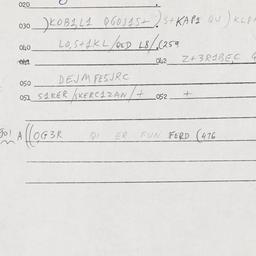 020
030 )KOB1L1 QGOJ1S+) S+KAP1 QU)KLD
040 LO,S+1KL/QCD L8/,(259
041 042 Z+3R1BEC
050 DEJMFE5JRC
051 S1KER/SKERC1ZAN/+ 052 +
A((OG3R QI ER FUN FERD (476